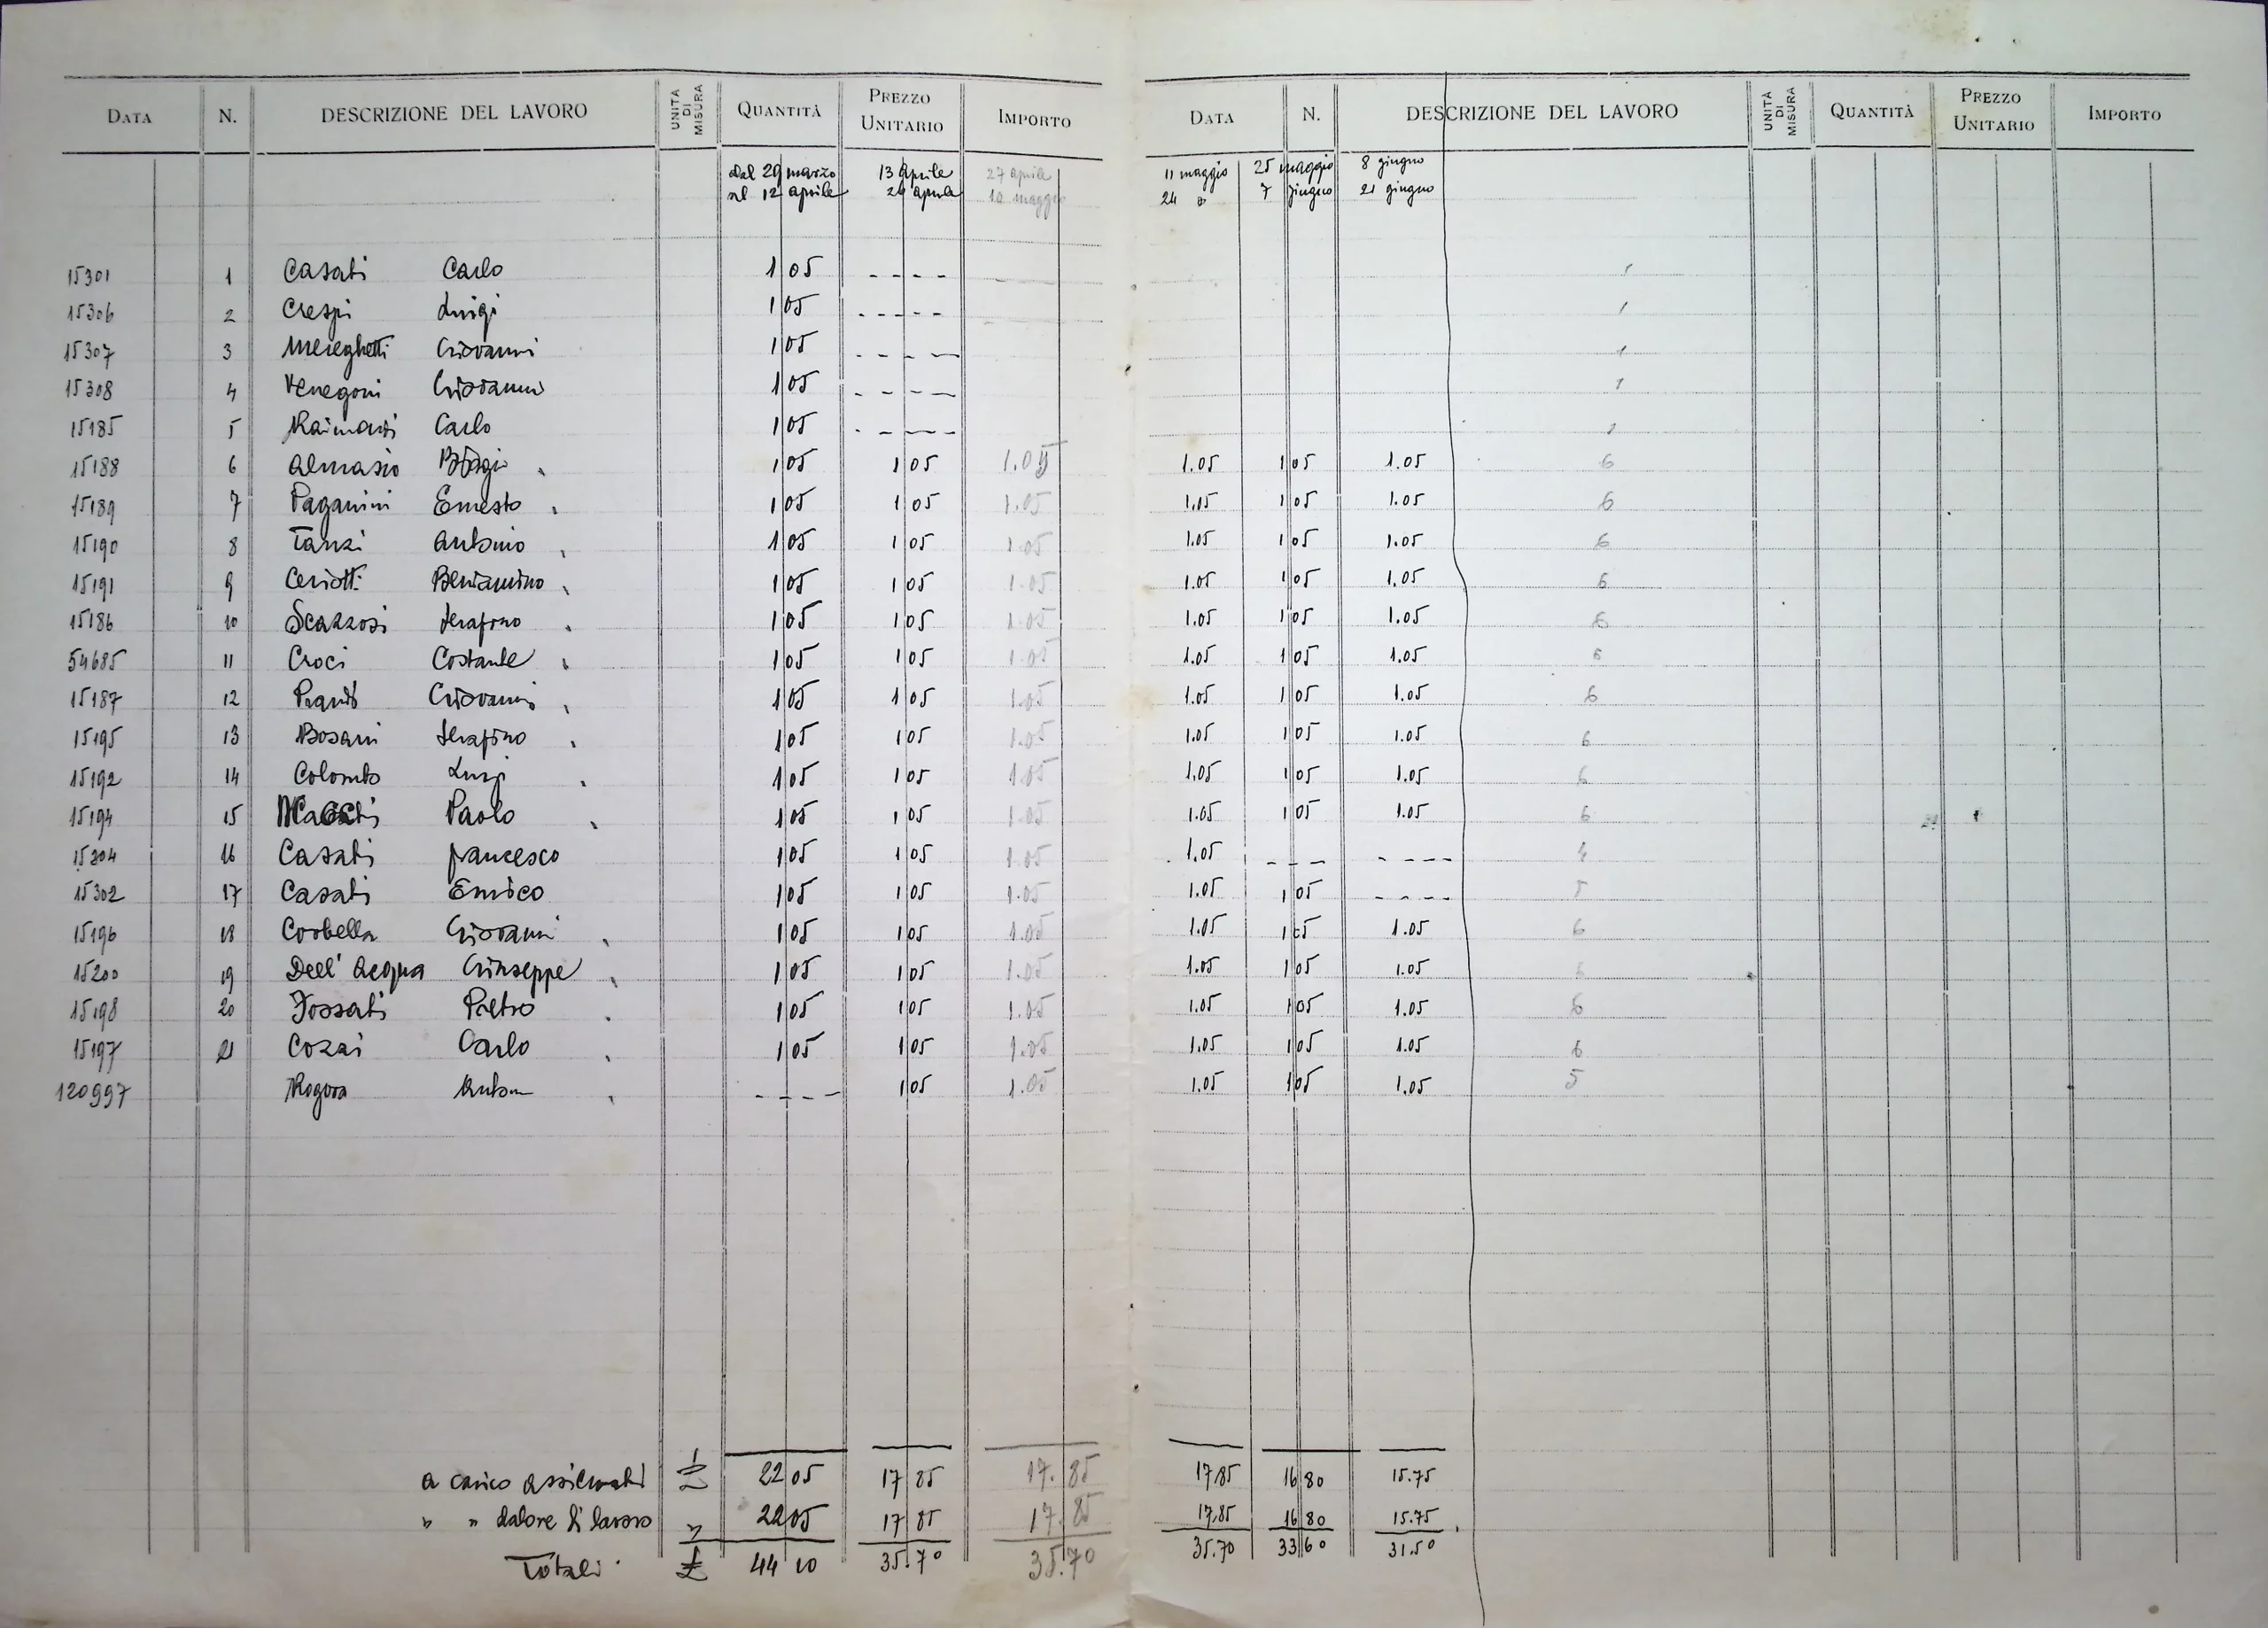 DATA N. DESCRIZIONE DEL LAVORO UNITÀ DI MISURA QUANTITÀ PREZZO UNITARIO IMPORTO DATA N. DESCRIZIONE DEL LAVORO UNITÀ DI MISURA QUANTITÀ PREZZO UNITARIO IMPORTO
dal 29 marzo 13 aprile 27 aprile 11 maggio 25 maggio 8 giugno
al 12 aprile 26 aprile 10 maggio 24 " 7 giugno 21 giugno
15301 1 Casati Carlo 1 05 - - - - 1
15306 2 Crespi Luigi 1 05 - - - - - 1
15307 3 Mereghetti Giovanni 1 05 - - - - 1
15308 4 Venegoni Giovanni 1 05 - - - - 1
15185 5 Raimondi Carlo 1 05 - - - - 1
15188 6 Almasio Biagio 1 05 1 05 1.05 1.05 1 05 1.05 6
15189 7 Paganini Ernesto 1 05 1 05 1.05 1.05 1 05 1.05 6
15190 8 Tanzi Antonio 1 05 1 05 1.05 1.05 1 05 1.05 6
15191 9 Ceriotti Beniamino 1 05 1 05 1.05 1.05 1 05 1.05 6
15186 10 Scazzosi Serafino 1 05 1 05 1.05 1.05 1 05 1.05 6
54685 11 Croci Costante 1 05 1 05 1.05 1.05 1 05 1.05 6
15187 12 Giovanni 1 05 1 05 1.05 1.05 1 05 1.05 6
15195 13 Bosani Serafino 1 05 1 05 1.05 1.05 1 05 1.05 6
15192 14 Colombo Luigi 1 05 1 05 1.05 1.05 1 05 1.05 6
15194 15 Paolo 1 05 1 05 1.05 1.05 1 05 1.05 6
15304 16 Casati francesco 1 05 1 05 1.05 1.05 - - - - - - - 4
15302 17 Casati Enrico 1 05 1 05 1.05 1.05 1 05 - - - - 5
15196 18 Corbella Giovanni 1 05 1 05 1.05 1.05 1 05 1.05 6
15200 19 Dell' Acqua Giuseppe 1 05 1 05 1.05 1.05 1 05 1.05 6
15198 20 Fossati Pietro 1 05 1 05 1.05 1.05 1 05 1.05 6
15197 21 Cozzi Carlo 1 05 1 05 1.05 1.05 1 05 1.05 6
120997 Rogora Anton - - - - 1 05 1.05 1.05 1 05 1.05 5
a carico assicurati £ 22 05 17 85 17.85 17.85 16 80 15.75
" " datore di lavoro " 22 05 17 85 17.85 17.85 16 80 15.75
Totali £ 44 10 35.70 35.70 35.70 33 60 31.50